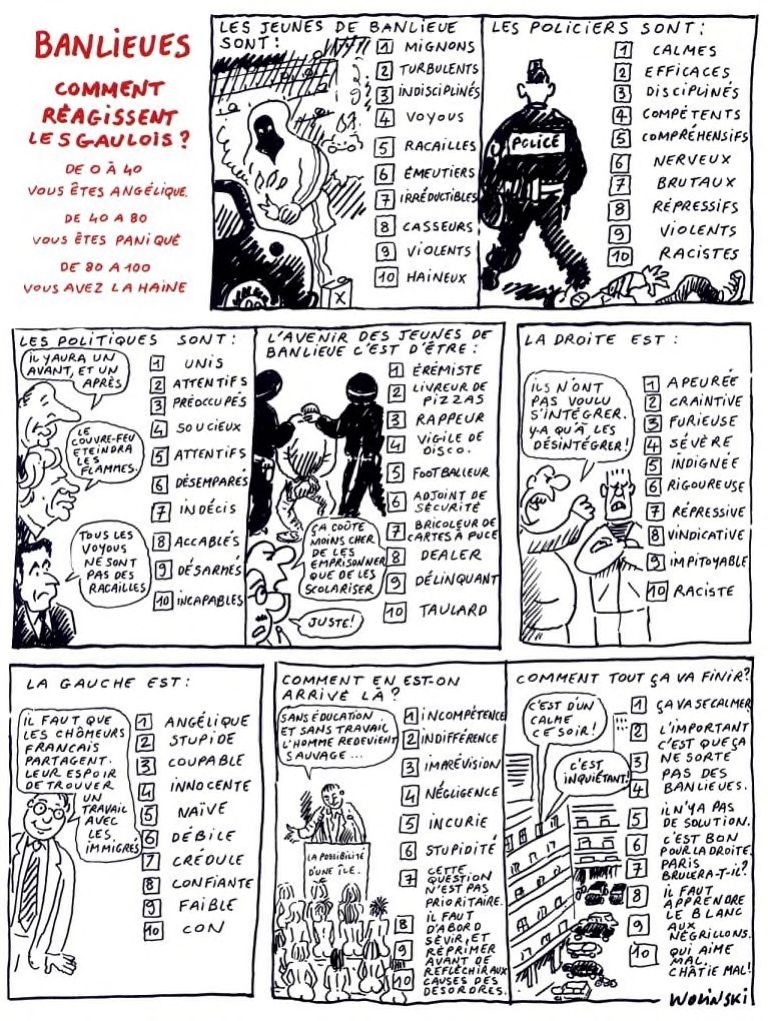 BANLIEUES
COMMENT
RÉAGISSENT
LES GAULOIS ?
DE 0 À 40
VOUS ÊTES ANGÉLIQUE.
DE 40 A 80
VOUS ÊTES PANIQUÉ
DE 80 A 100
VOUS AVEZ LA HAINE
LES JEUNES DE BANLIEUE
SONT :
1 MIGNONS
2 TURBULENTS
3 INDISCIPLINÉS
4 VOYOUS
5 RACAILLES
6 ÉMEUTIERS
7 IRRÉDUCTIBLES
8 CASSEURS
9 VIOLENTS
10 HAINEUX
LES POLICIERS SONT :
POLICE
1 CALMES
2 EFFICACES
3 DISCIPLINÉS
4 COMPÉTENTS
5 COMPRÉHENSIFS
6 NERVEUX
7 BRUTAUX
8 RÉPRESSIFS
9 VIOLENTS
10 RACISTES
LES POLITIQUES SONT :
IL Y AURA UN
AVANT, ET UN
APRÈS
LE
COUVRE-FEU
ETEINDRA
LES
FLAMMES.
TOUS LES
VOYOUS
NE SONT
PAS DES
RACAILLES
1 UNIS
2 ATTENTIFS
3 PRÉOCCUPÉS
4 SOUCIEUX
5 ATTENTIFS
6 DÉSEMPARÉS
7 INDÉCIS
8 ACCABLÉS
9 DÉSARMÉS
10 INCAPABLES
L'AVENIR DES JEUNES DE
BANLIEUE C'EST D'ÊTRE :
ÇA COÛTE
MOINS CHER
DE LES
EMPRISONNER
QUE DE LES
SCOLARISER
JUSTE !
1 ÉRÉMISTE
2 LIVREUR DE
PIZZAS
3 RAPPEUR
4 VIGILE DE
DISCO.
5 FOOTBALLEUR
6 ADJOINT DE
SÉCURITÉ
7 BRICOLEUR DE
CARTES À PUCE
8 DEALER
9 DÉLINQUANT
10 TAULARD
LA DROITE EST :
ILS N'ONT
PAS VOULU
S'INTÉGRER.
Y-A QU'À LES
DÉSINTÉGRER !
1 APEURÉE
2 CRAINTIVE
3 FURIEUSE
4 SÉVÈRE
5 INDIGNÉE
6 RIGOUREUSE
7 RÉPRESSIVE
8 VINDICATIVE
9 IMPITOYABLE
10 RACISTE
LA GAUCHE EST :
IL FAUT QUE
LES CHÔMEURS
FRANCAIS
PARTAGENT.
LEUR ESPOIR
DE TROUVER
UN
TRAVAIL
AVEC
LES
IMMIGRÉS
1 ANGÉLIQUE
2 STUPIDE
3 COUPABLE
4 INNOCENTE
5 NAÏVE
6 DÉBILE
7 CRÉDULE
8 CONFIANTE
9 FAIBLE
10 CON
COMMENT EN EST-ON
ARRIVÉ LÀ ?
SANS ÉDUCATION
ET SANS TRAVAIL
L'HOMME REDEVIENT
SAUVAGE ...
LA POSSIBILITÉ
D'UNE ÎLE.
1 INCOMPÉTENCE
2 INDIFFÉRENCE
3 IMPRÉVISION
4 NÉGLIGENCE
5 INCURIE
6 STUPIDITÉ
7 CETTE
QUESTION
N'EST PAS
PRIORITAIRE.
8 IL FAUT
D'ABORD
9 SÉVIR, ET
RÉPRIMER
AVANT DE
RÉFLÉCHIR AUX
10 CAUSES DES
DÉSORDRES.
COMMENT TOUT ÇA VA FINIR ?
C'EST D'UN
CALME
CE SOIR !
C'EST
INQUIÉTANT !
1 ÇA VA SE CALMER
2 L'IMPORTANT
C'EST QUE ÇA
3 NE SORTE
4 PAS DES
BANLIEUES.
5 IL N'Y A PAS
DE SOLUTION.
6 C'EST BON
POUR LA DROITE.
7 PARIS
BRULERA-T-IL ?
8 IL FAUT
APPRENDRE
LE BLANC
9 AUX
NÉGRILLONS.
10 QUI AIME
MAL,
CHÂTIE MAL !
WOLINSKI